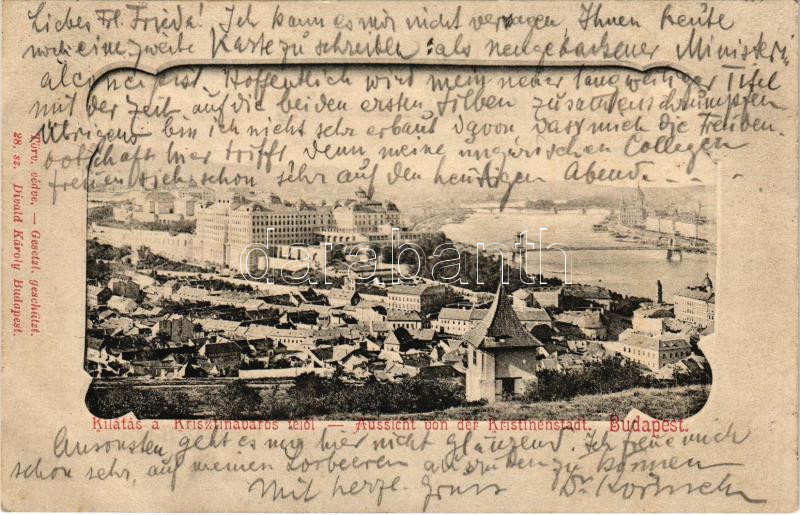 Liebes Frl. Frieda! Ich kann es mir nicht versagen, Ihnen heute
noch eine zweite Karte zu schreiben: als neugebackener Ministeri-
alconcipist. Hoffentlich wird mein neuer langweiliger Titel
mit der Zeit auf die beiden ersten Silben zusammenschrumpfen
Übrigens bin ich nicht sehr erbaut davon, dass mich die Freuden-
botschaft hier trifft, denn meine ungarischen Collegen
freuen sich schon sehr auf den heutigen Abend.
darabanth.com
Kilátás a Krisztinaváros felől — Aussicht von der Kristinenstadt. Budapest.
Törv. védve. — Gesetzl. geschützt.
28. sz. Divald Károly Budapest.
Ansonsten geht es mir hier nicht glänzend. Ich freue mich
schon sehr, auf meinen Lorbeeren ausruhen zu können
Mit herzl. Gruss